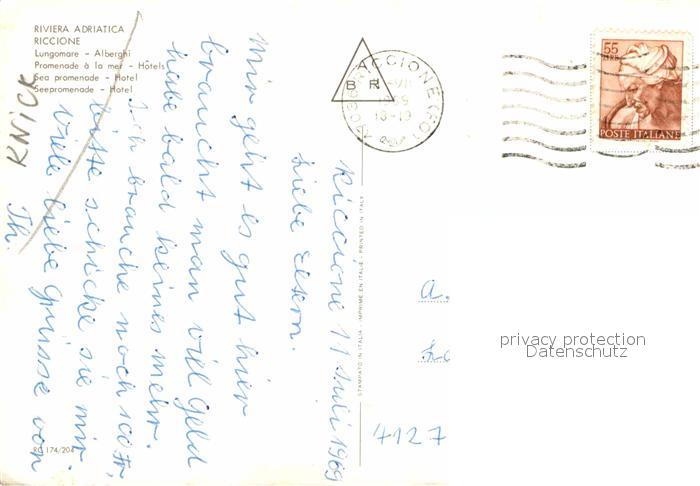 RIVIERA ADRIATICA
RICCIONE
Lungomare - Alberghi
Promenade à la mer - Hôtels
Sea promenade - Hotel
Seepromenade - Hotel
KNICK
Riccione 11 Juli 1969
Liebe Eltern.
Mir geht es gut hier
braucht man viel Geld
habe bald keines mehr.
Ich brauche noch 100 Fr,
bitte schicke sie mir.
Viele liebe Grüsse von
Th.
RG 174/204
STAMPATO IN ITALIA - IMPRIMÉ EN ITALIE - PRINTED IN ITALY
B R
RICCIONE (FO)
18-19
55
LIRE
POSTE ITALIANE
A.
4127
privacy protection
Datenschutz